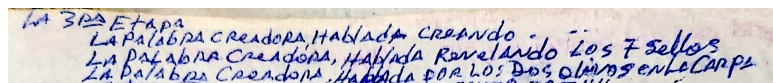 LA 3RA ETAPA
LA PALABRA CREADORA, HABlADA CREANDO. . .
LA PALABRA CREADORA, HABlADA REVELANDO LOS 7 Sellos
LA PALABRA CREADORA, HABlADA POR LOS DOS OLIVOS EN LA CARPA